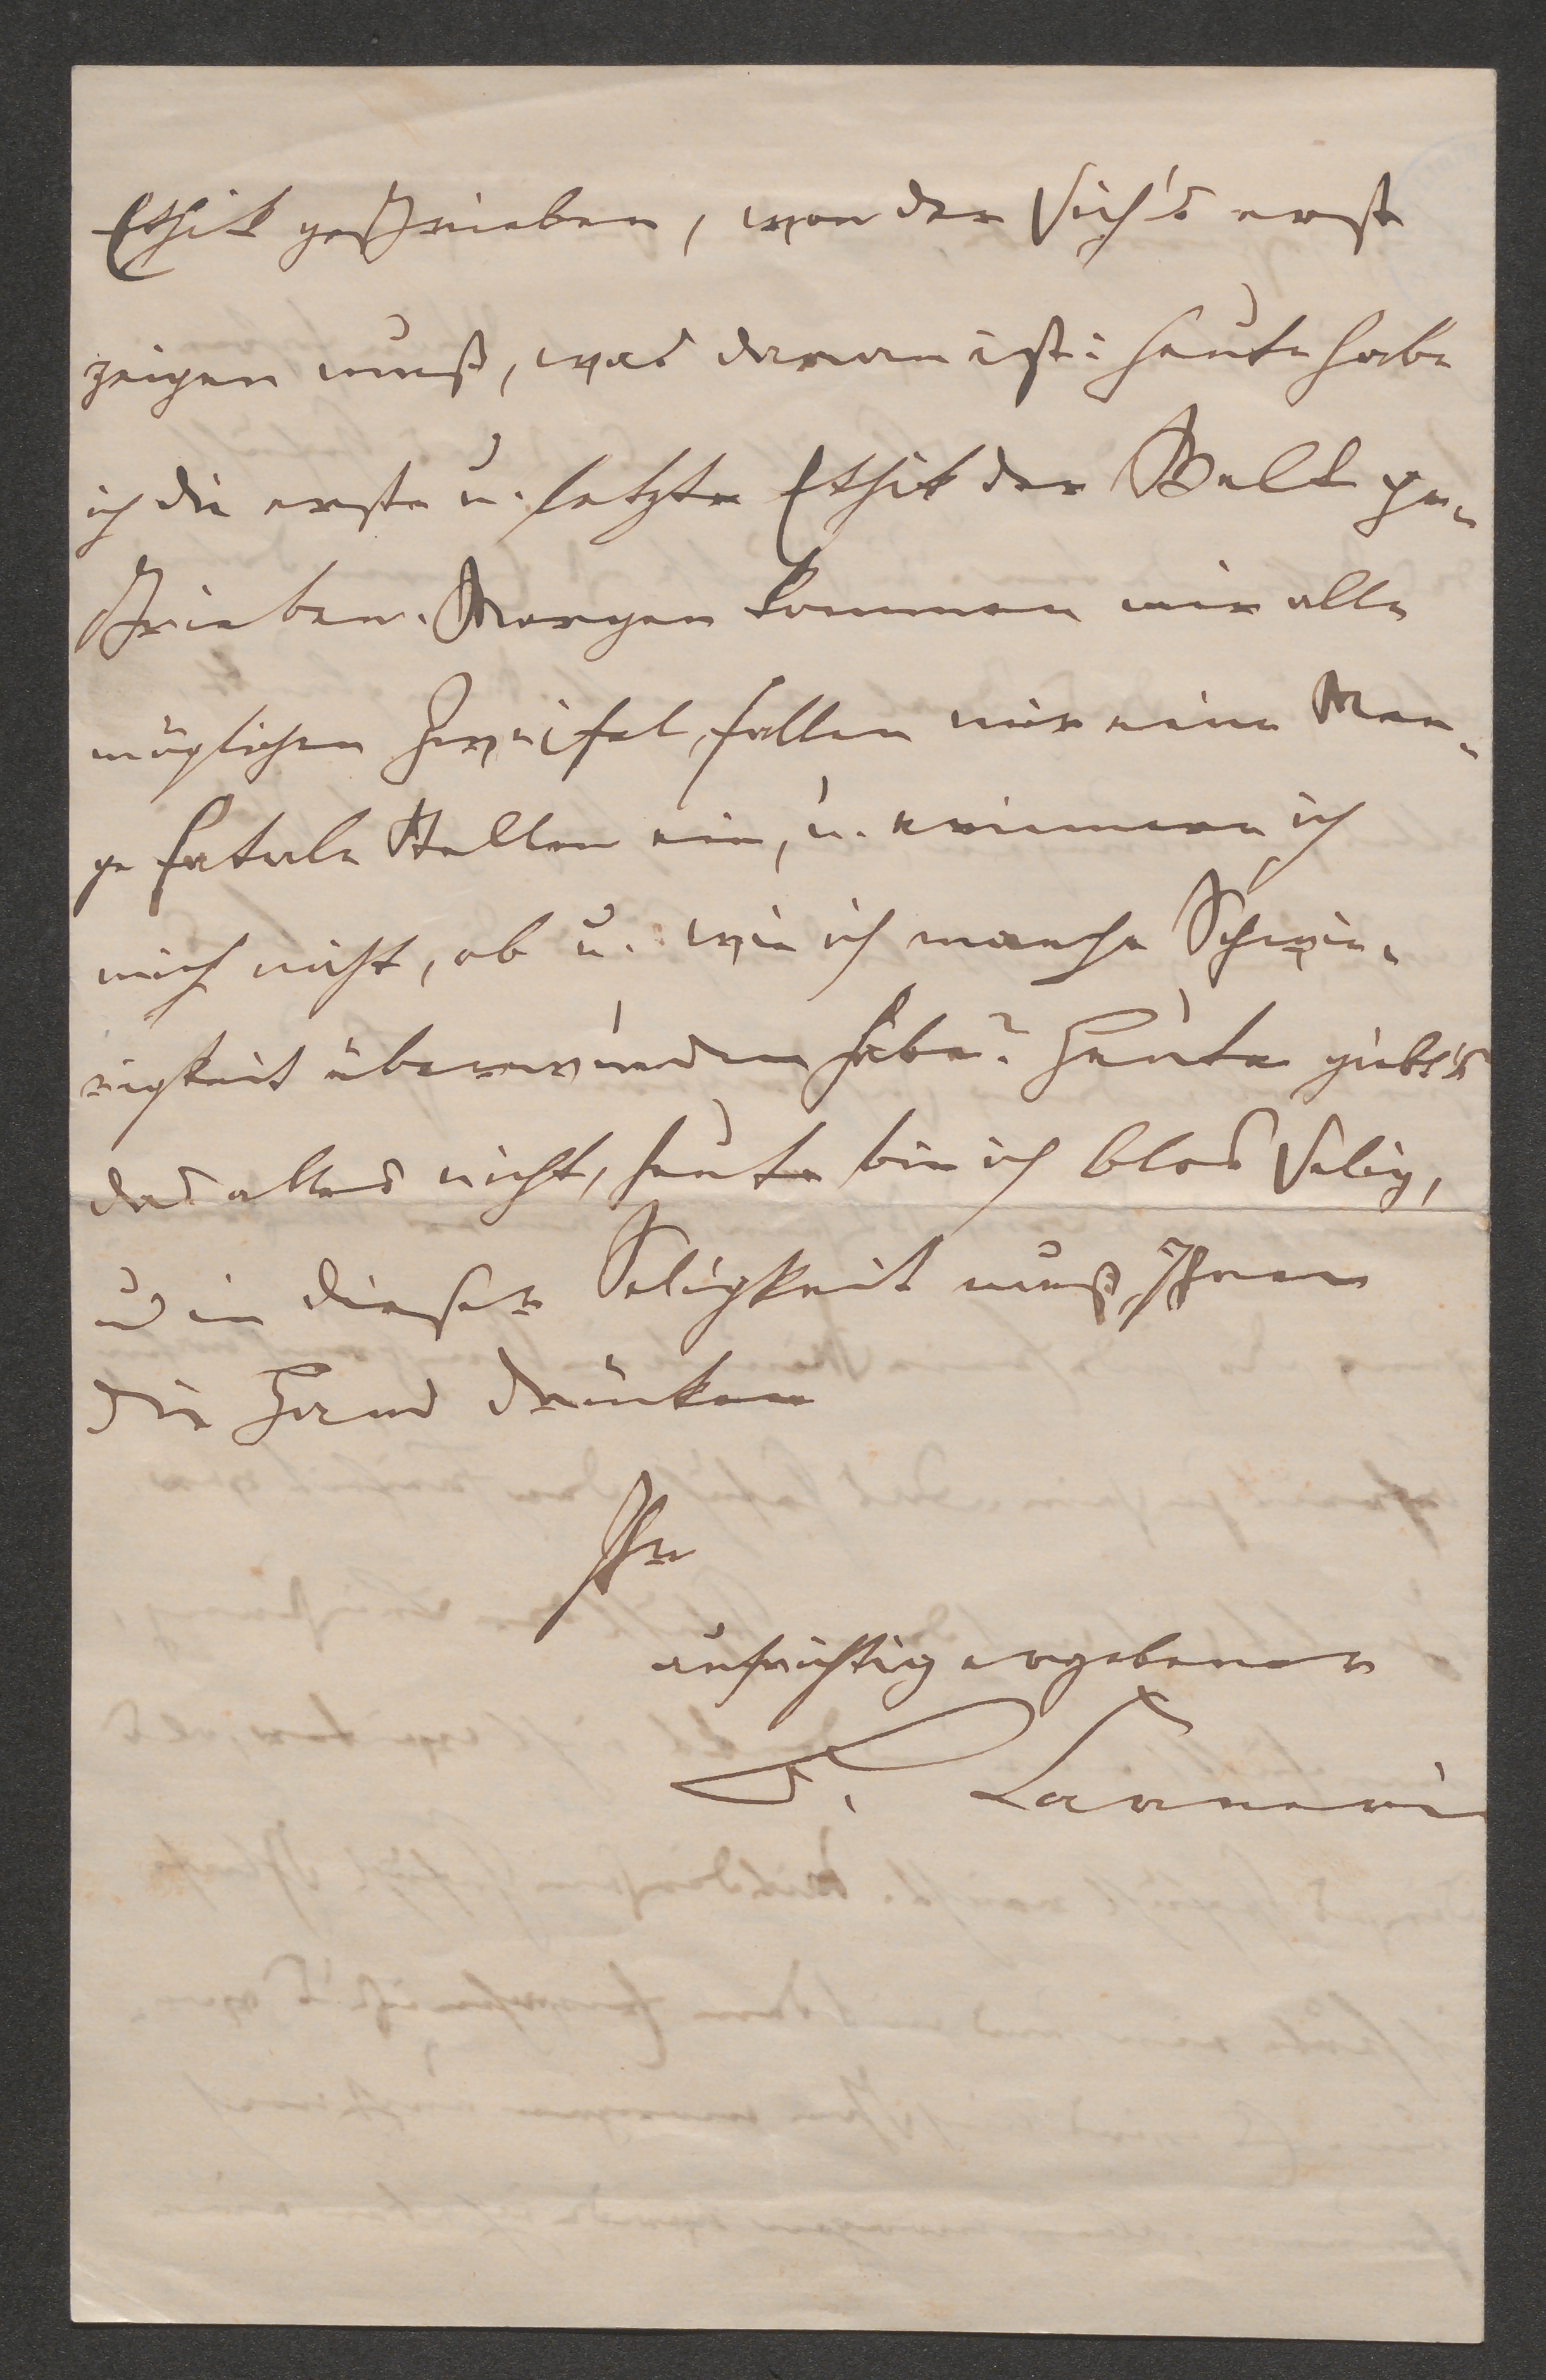 Ethik geschrieben, von der sich's erst
zeigen muß, was daran ist: heute habe
ich die erste u. letzte Ethik der Welt ge-
schrieben. Morgen kommen mir alle
möglichen Zweifel, fallen mir eine Men-
ge fatale Stellen ein, u. erinnere ich
mich nicht, ob u. wie ich manche Schwie-
rigkeit überwunden habe? Heute giebt's
das alles nicht, heute bin ich blos selig,
u in dieser Seligkeit muß Ihnen
die Hand drücken
Ihr
aufrichtig ergebener
B. Carneri